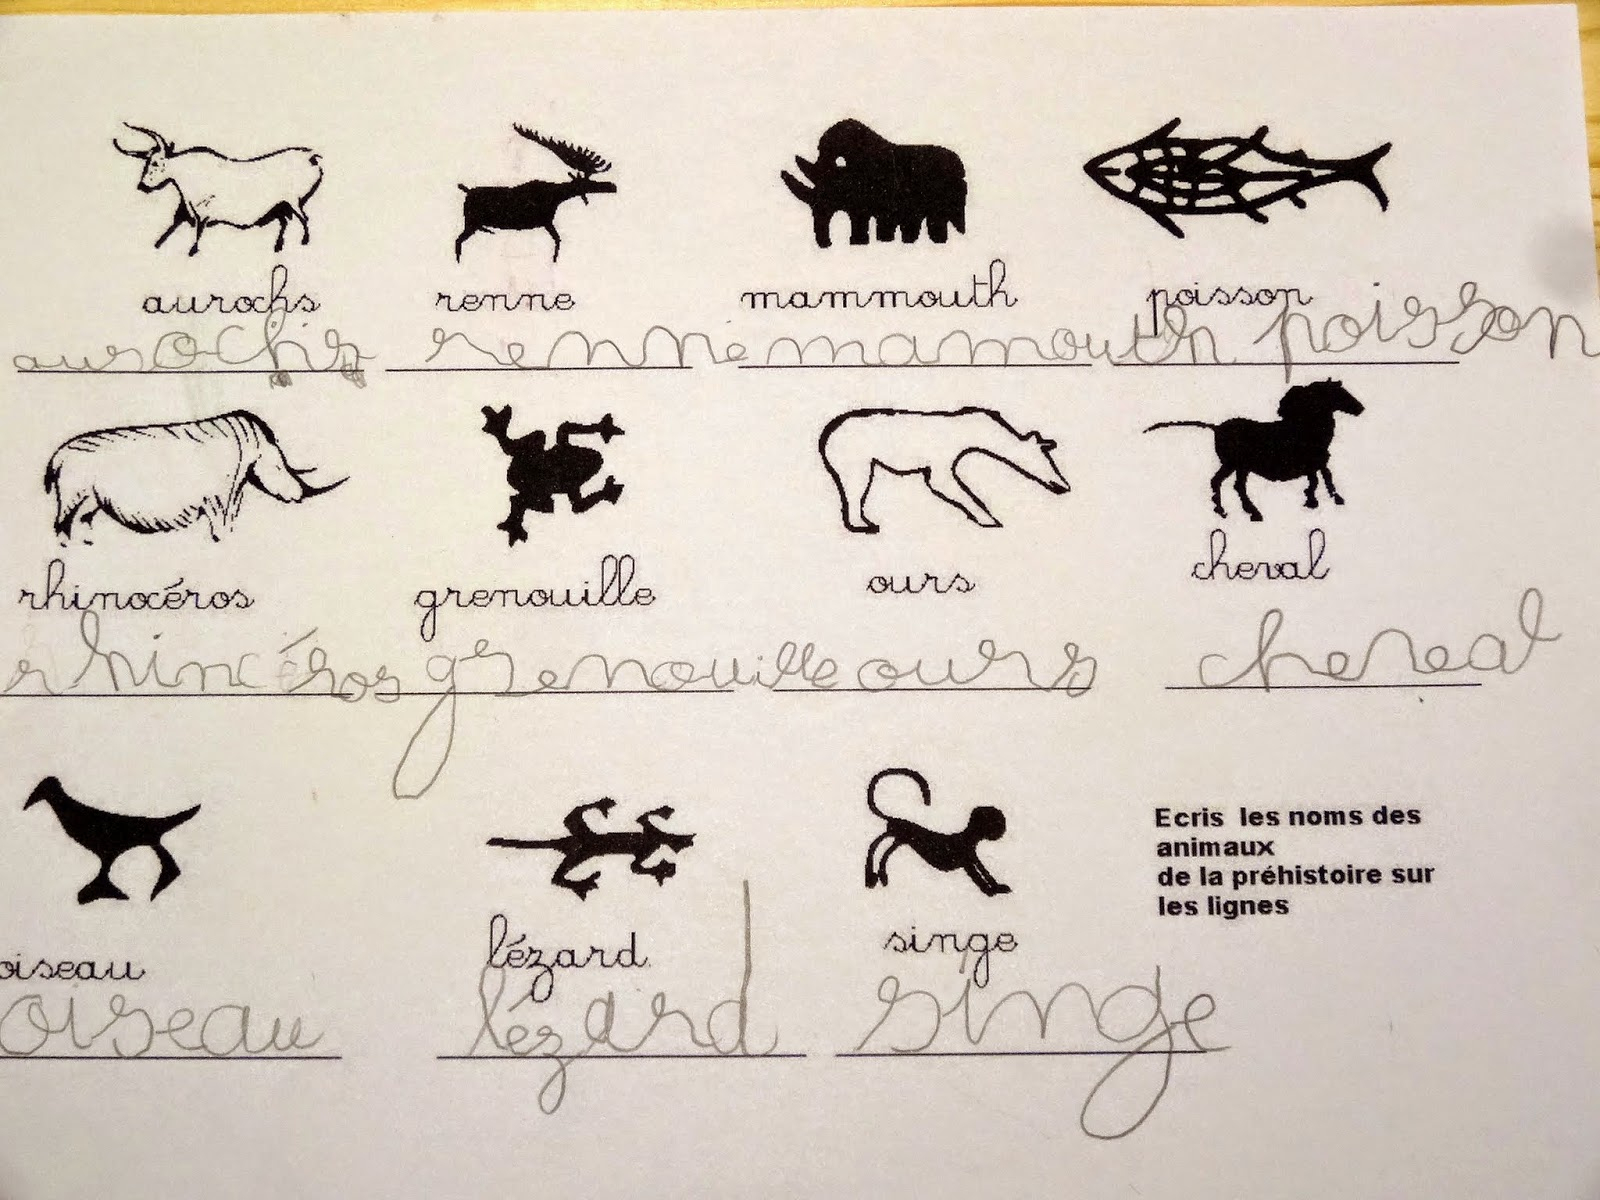 aurochs renne mammouth poisson
aurochs renne mamouth poisson
rhinocéros grenouille ours cheval
rhincéros grenouille ours cheval
Ecris les noms des
animaux
de la préhistoire sur
les lignes
oiseau lézard singe
oiseau lézard singe